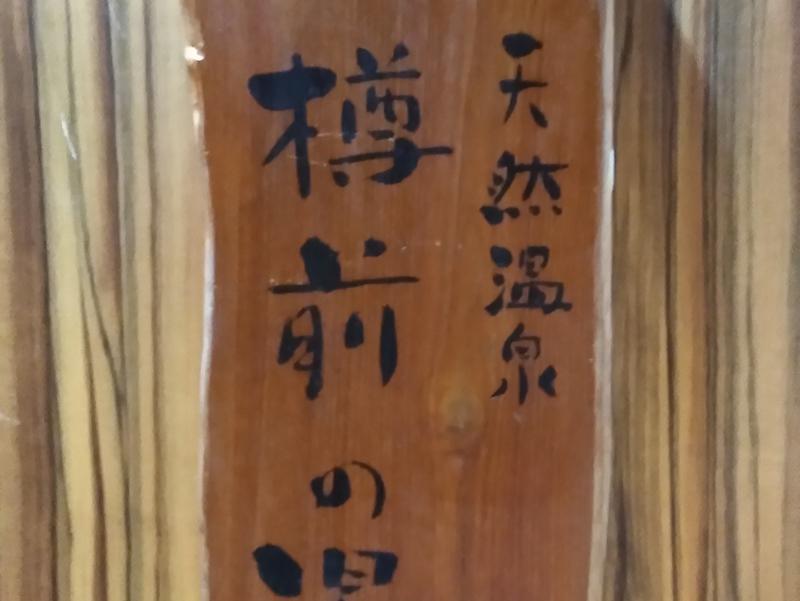 天然温泉
樽前の